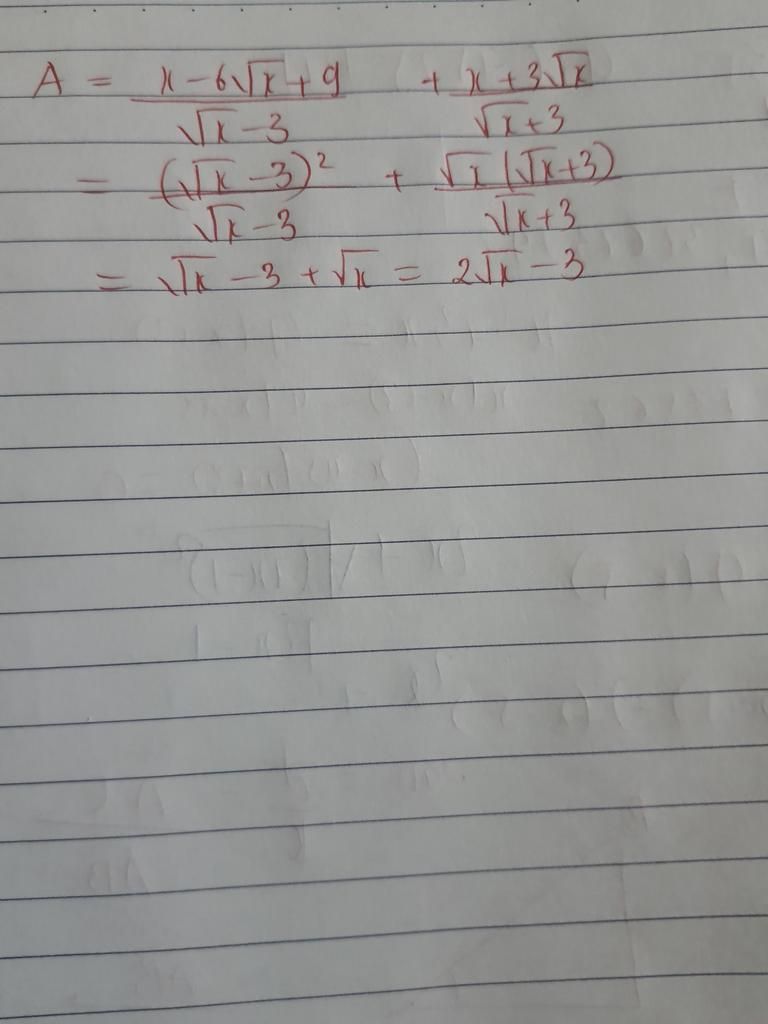 A = (x - 6√x + 9)/(√x - 3) + (x + 3√x)/(√x + 3)
= (√x - 3)²/(√x - 3) + √x(√x + 3)/(√x + 3)
= √x - 3 + √x = 2√x - 3